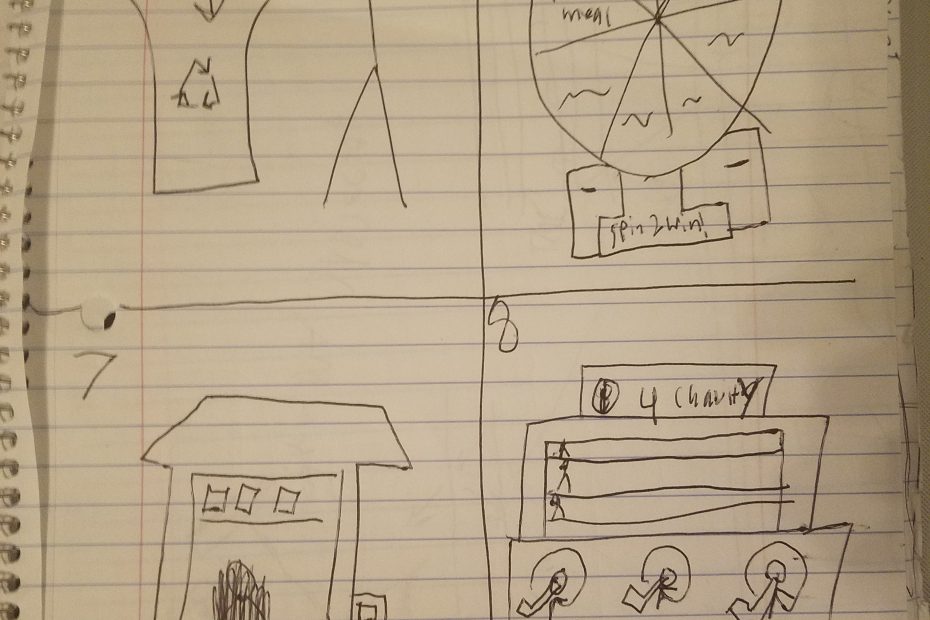 meal
spin 2 win!
7
8
4 Charity